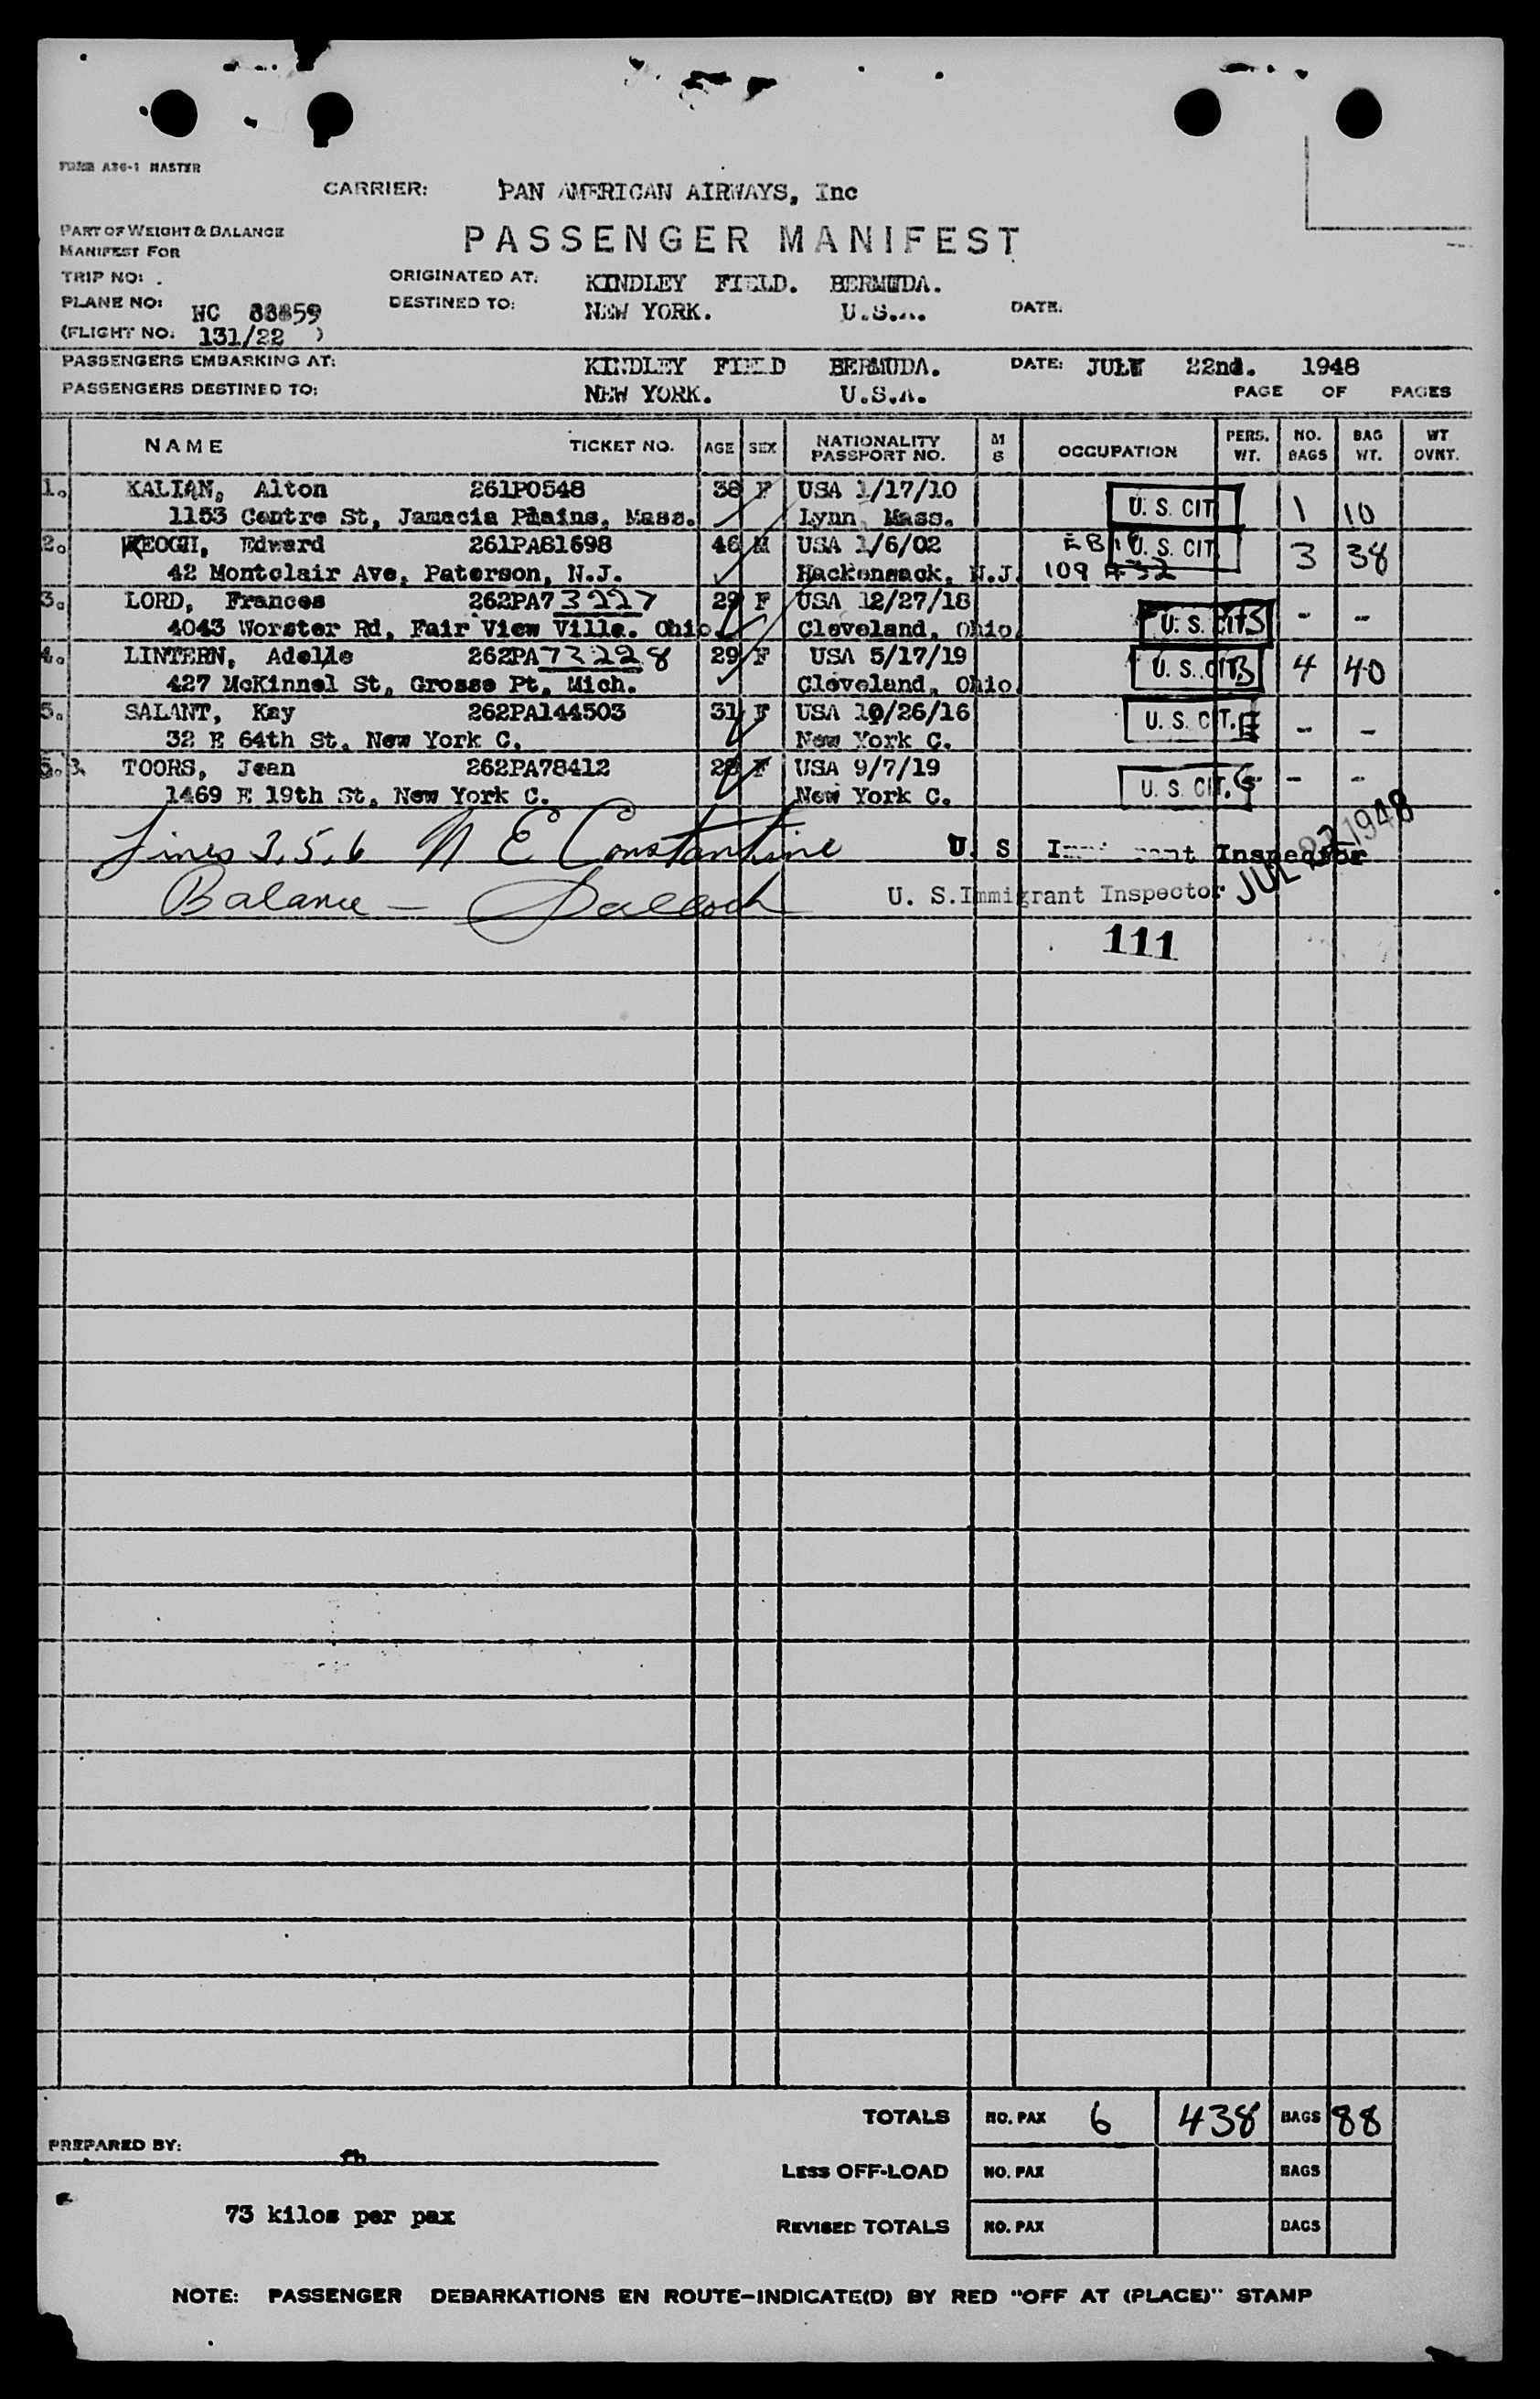 FORM A36-1 MASTER
CARRIER: PAN AMERICAN AIRWAYS, Inc
PART OF WEIGHT & BALANCE
MANIFEST FOR
PASSENGER MANIFEST
TRIP NO: .
ORIGINATED AT: KINDLEY FIELD. BERMUDA.
PLANE NO: NC 88859
DESTINED TO: NEW YORK. U.S.A. DATE:
(FLIGHT NO. 131/22 )
PASSENGERS EMBARKING AT: KINDLEY FIELD BERMUDA. DATE: JULY 22nd. 1948
PASSENGERS DESTINED TO: NEW YORK. U.S.A. PAGE OF PAGES
NAME TICKET NO. AGE SEX NATIONALITY PASSPORT NO. M S OCCUPATION PERS. WT. NO. BAGS BAG WT. WT OVNT.
1. KALIAN, Alton 261PO548 38 F USA 1/17/10 U. S. CIT 1 10
1153 Centre St, Jamacia Plains, Mass. Lynn Mass.
2. KEOGH, Edward 261PA81698 46 M USA 1/6/02 U. S. CIT 3 38
42 Montclair Ave, Paterson, N.J. Hackensack, N.J. 109
3. LORD, Frances 262PA73227 29 F USA 12/27/18 U. S. CIT B - -
4043 Worster Rd, Fair View Ville. Ohio. Cleveland, Ohio
4. LINTERN, Adelle 262PA73228 29 F USA 5/17/19 U. S. CIT B 4 40
427 McKinnel St, Grosse Pt, Mich. Cleveland, Ohio
5. SALANT, Kay 262PA144503 31 F USA 10/26/16 U. S. CIT. E - -
32 E 64th St. New York C. New York C.
5. TOORS, Jean 262PA78412 28 F USA 9/7/19 U. S. CIT. G - -
1469 E 19th St, New York C. New York C.
Lines 3,5,6 N E Constantine U. S Immigrant Inspector
Balance - U. S. Immigrant Inspector JUL 22 1948
111
TOTALS NO. PAX 6 438 BAGS 88
PREPARED BY: fh
LESS OFF-LOAD NO. PAX BAGS
73 kilos per pax
REVISED TOTALS NO. PAX BAGS
NOTE: PASSENGER DEBARKATIONS EN ROUTE-INDICATE(D) BY RED "OFF AT (PLACE)" STAMP